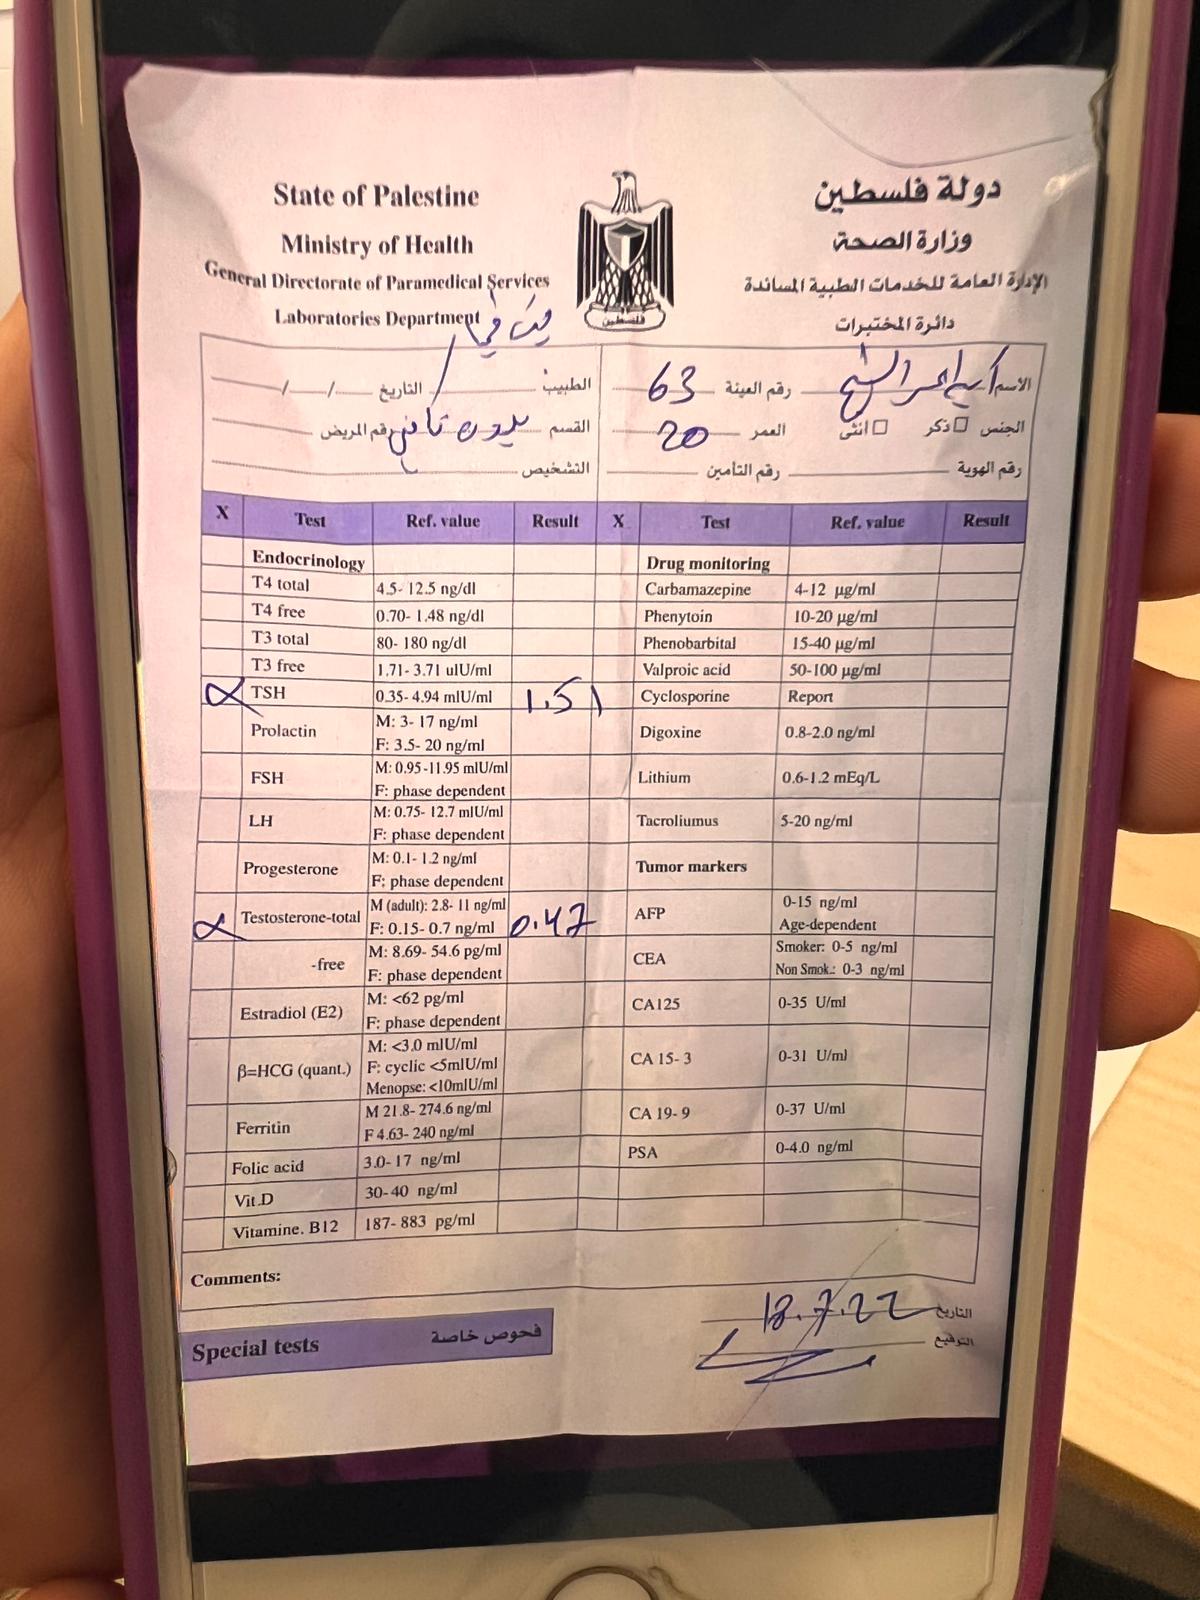 State of Palestine
Ministry of Health
General Directorate of Paramedical Services
Laboratories Department
دولة فلسطين
وزارة الصحة
الإدارة العامة للخدمات الطبية المساندة
دائرة المختبرات
فلسطين
الاسم رقم العينة 63
الجنس ذكر انثى العمر 20
رقم الهوية رقم التأمين
الطبيب التاريخ / /
القسم رقم المريض
التشخيص
X Test Ref. value Result X Test Ref. value Result
Endocrinology Drug monitoring
T4 total 4.5- 12.5 ng/dl Carbamazepine 4-12 µg/ml
T4 free 0.70- 1.48 ng/dl Phenytoin 10-20 µg/ml
T3 total 80- 180 ng/dl Phenobarbital 15-40 µg/ml
T3 free 1.71- 3.71 uIU/ml Valproic acid 50-100 µg/ml
TSH 0.35- 4.94 mIU/ml 1.51 Cyclosporine Report
Prolactin M: 3- 17 ng/ml
F: 3.5- 20 ng/ml Digoxine 0.8-2.0 ng/ml
FSH M: 0.95-11.95 mIU/ml
F: phase dependent Lithium 0.6-1.2 mEq/L
LH M: 0.75- 12.7 mIU/ml
F: phase dependent Tacroliumus 5-20 ng/ml
Progesterone M: 0.1- 1.2 ng/ml
F: phase dependent Tumor markers
Testosterone-total M (adult): 2.8- 11 ng/ml
F: 0.15- 0.7 ng/ml 0.47 AFP 0-15 ng/ml
Age-dependent
-free M: 8.69- 54.6 pg/ml
F: phase dependent CEA Smoker: 0-5 ng/ml
Non Smok.: 0-3 ng/ml
Estradiol (E2) M: <62 pg/ml
F: phase dependent CA125 0-35 U/ml
β=HCG (quant.) M: <3.0 mIU/ml
F: cyclic <5mIU/ml
Menopse: <10mIU/ml CA 15- 3 0-31 U/ml
Ferritin M 21.8- 274.6 ng/ml
F 4.63- 240 ng/ml CA 19- 9 0-37 U/ml
Folic acid 3.0- 17 ng/ml PSA 0-4.0 ng/ml
Vit.D 30- 40 ng/ml
Vitamine. B12 187- 883 pg/ml
Comments:
التاريخ 18.7.22
التوقيع
Special tests فحوص خاصة